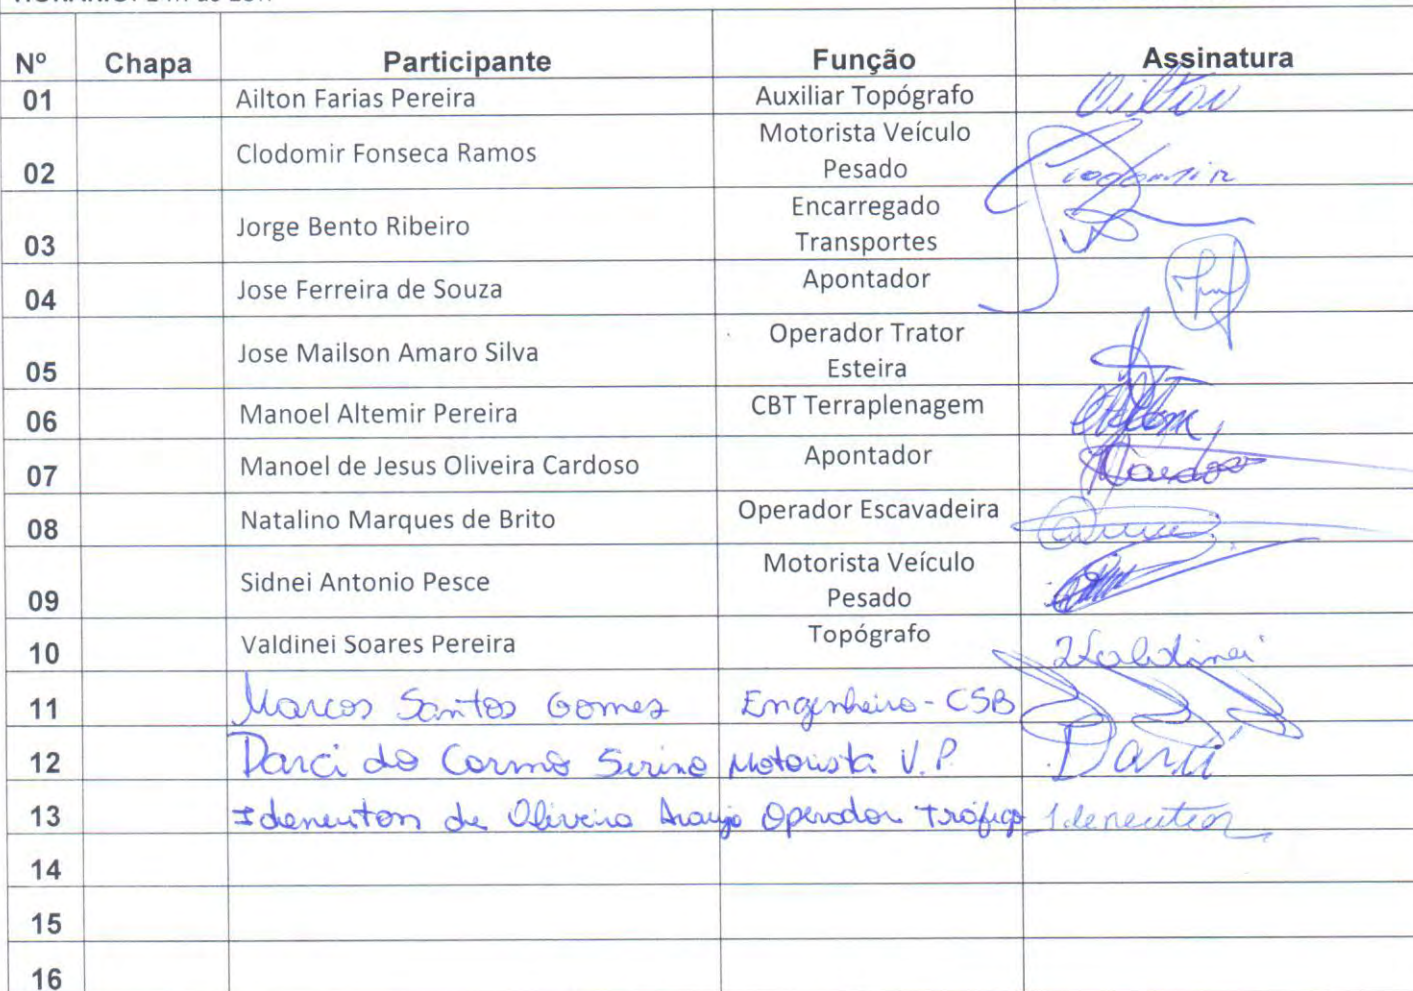 Nº Chapa Participante Função Assinatura
01 Ailton Farias Pereira Auxiliar Topógrafo Ailton
02 Clodomir Fonseca Ramos Motorista Veículo Pesado Clodomir
03 Jorge Bento Ribeiro Encarregado Transportes
04 Jose Ferreira de Souza Apontador
05 Jose Mailson Amaro Silva Operador Trator Esteira
06 Manoel Altemir Pereira CBT Terraplenagem
07 Manoel de Jesus Oliveira Cardoso Apontador Cardoso
08 Natalino Marques de Brito Operador Escavadeira
09 Sidnei Antonio Pesce Motorista Veículo Pesado
10 Valdinei Soares Pereira Topógrafo Valdinei
11 Marcos Santos Gomes Engenheiro - CSB
12 Darci do Carmo Serino Motorista V.P. Darci
13 Ideneuton de Oliveira Araujo Operador Tráfego Ideneuton
14
15
16